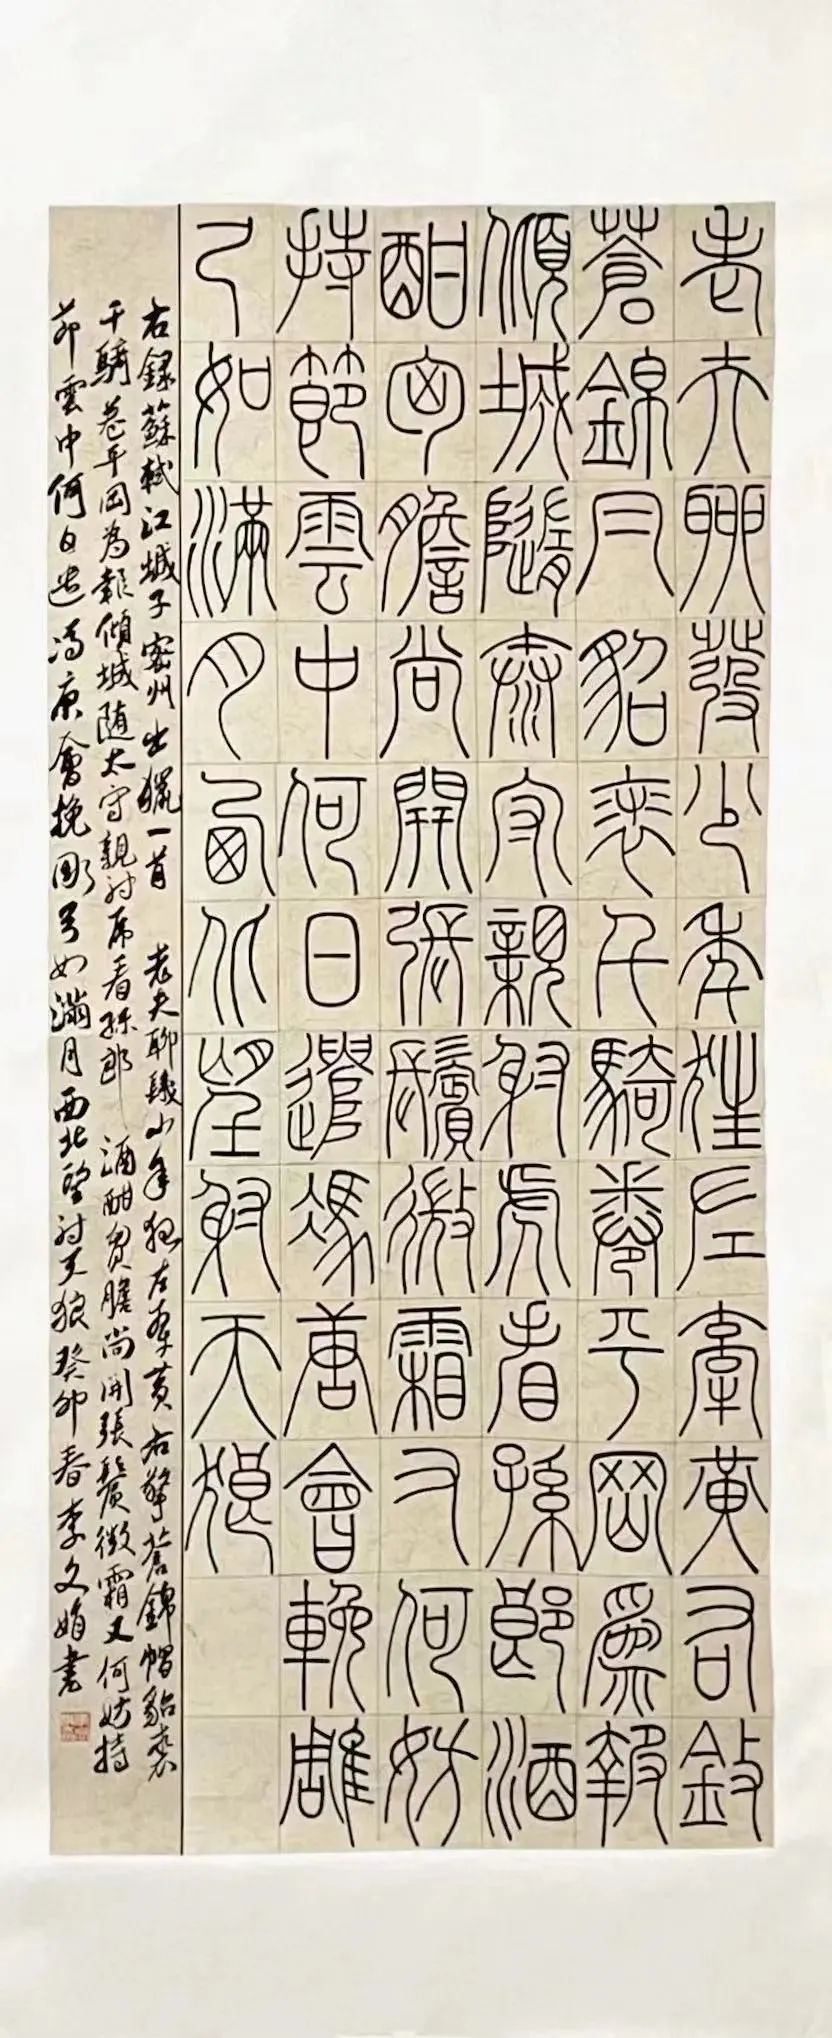 老夫聊發少年狂左牽黃右擎
蒼錦帽貂裘千騎卷平岡爲報
傾城隨泰守親射虎看孫郎酒
酣胷膽尚開張鬢微霜又何妨
持節雲中何日遣馮唐會輓雕
弓如滿月西北望射天狼
右錄蘇軾江城子密州出獵一首 老夫聊發少年狂左牽黃右擎蒼錦帽貂裘
千騎卷平岡為報傾城随太守親射虎看孫郎 酒酣胷膽尚開張鬢微霜又何妨持
節雲中何日遣馮唐會挽彫弓如滿月西北望射天狼癸卯春李文娟書